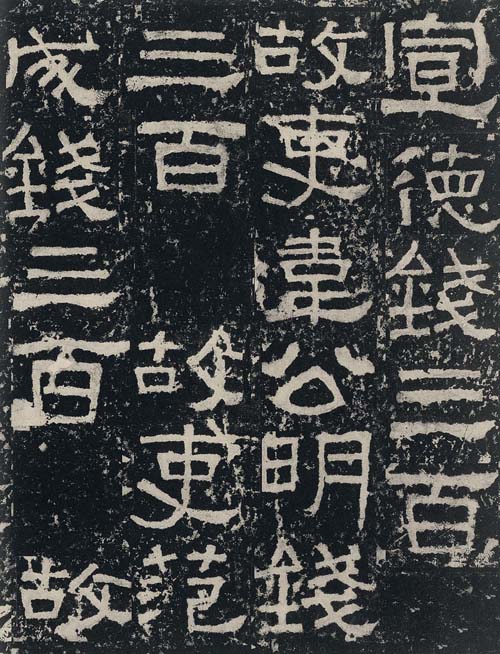 宣德錢三百
故吏韋公明錢
三百 故吏范
成錢三百 故